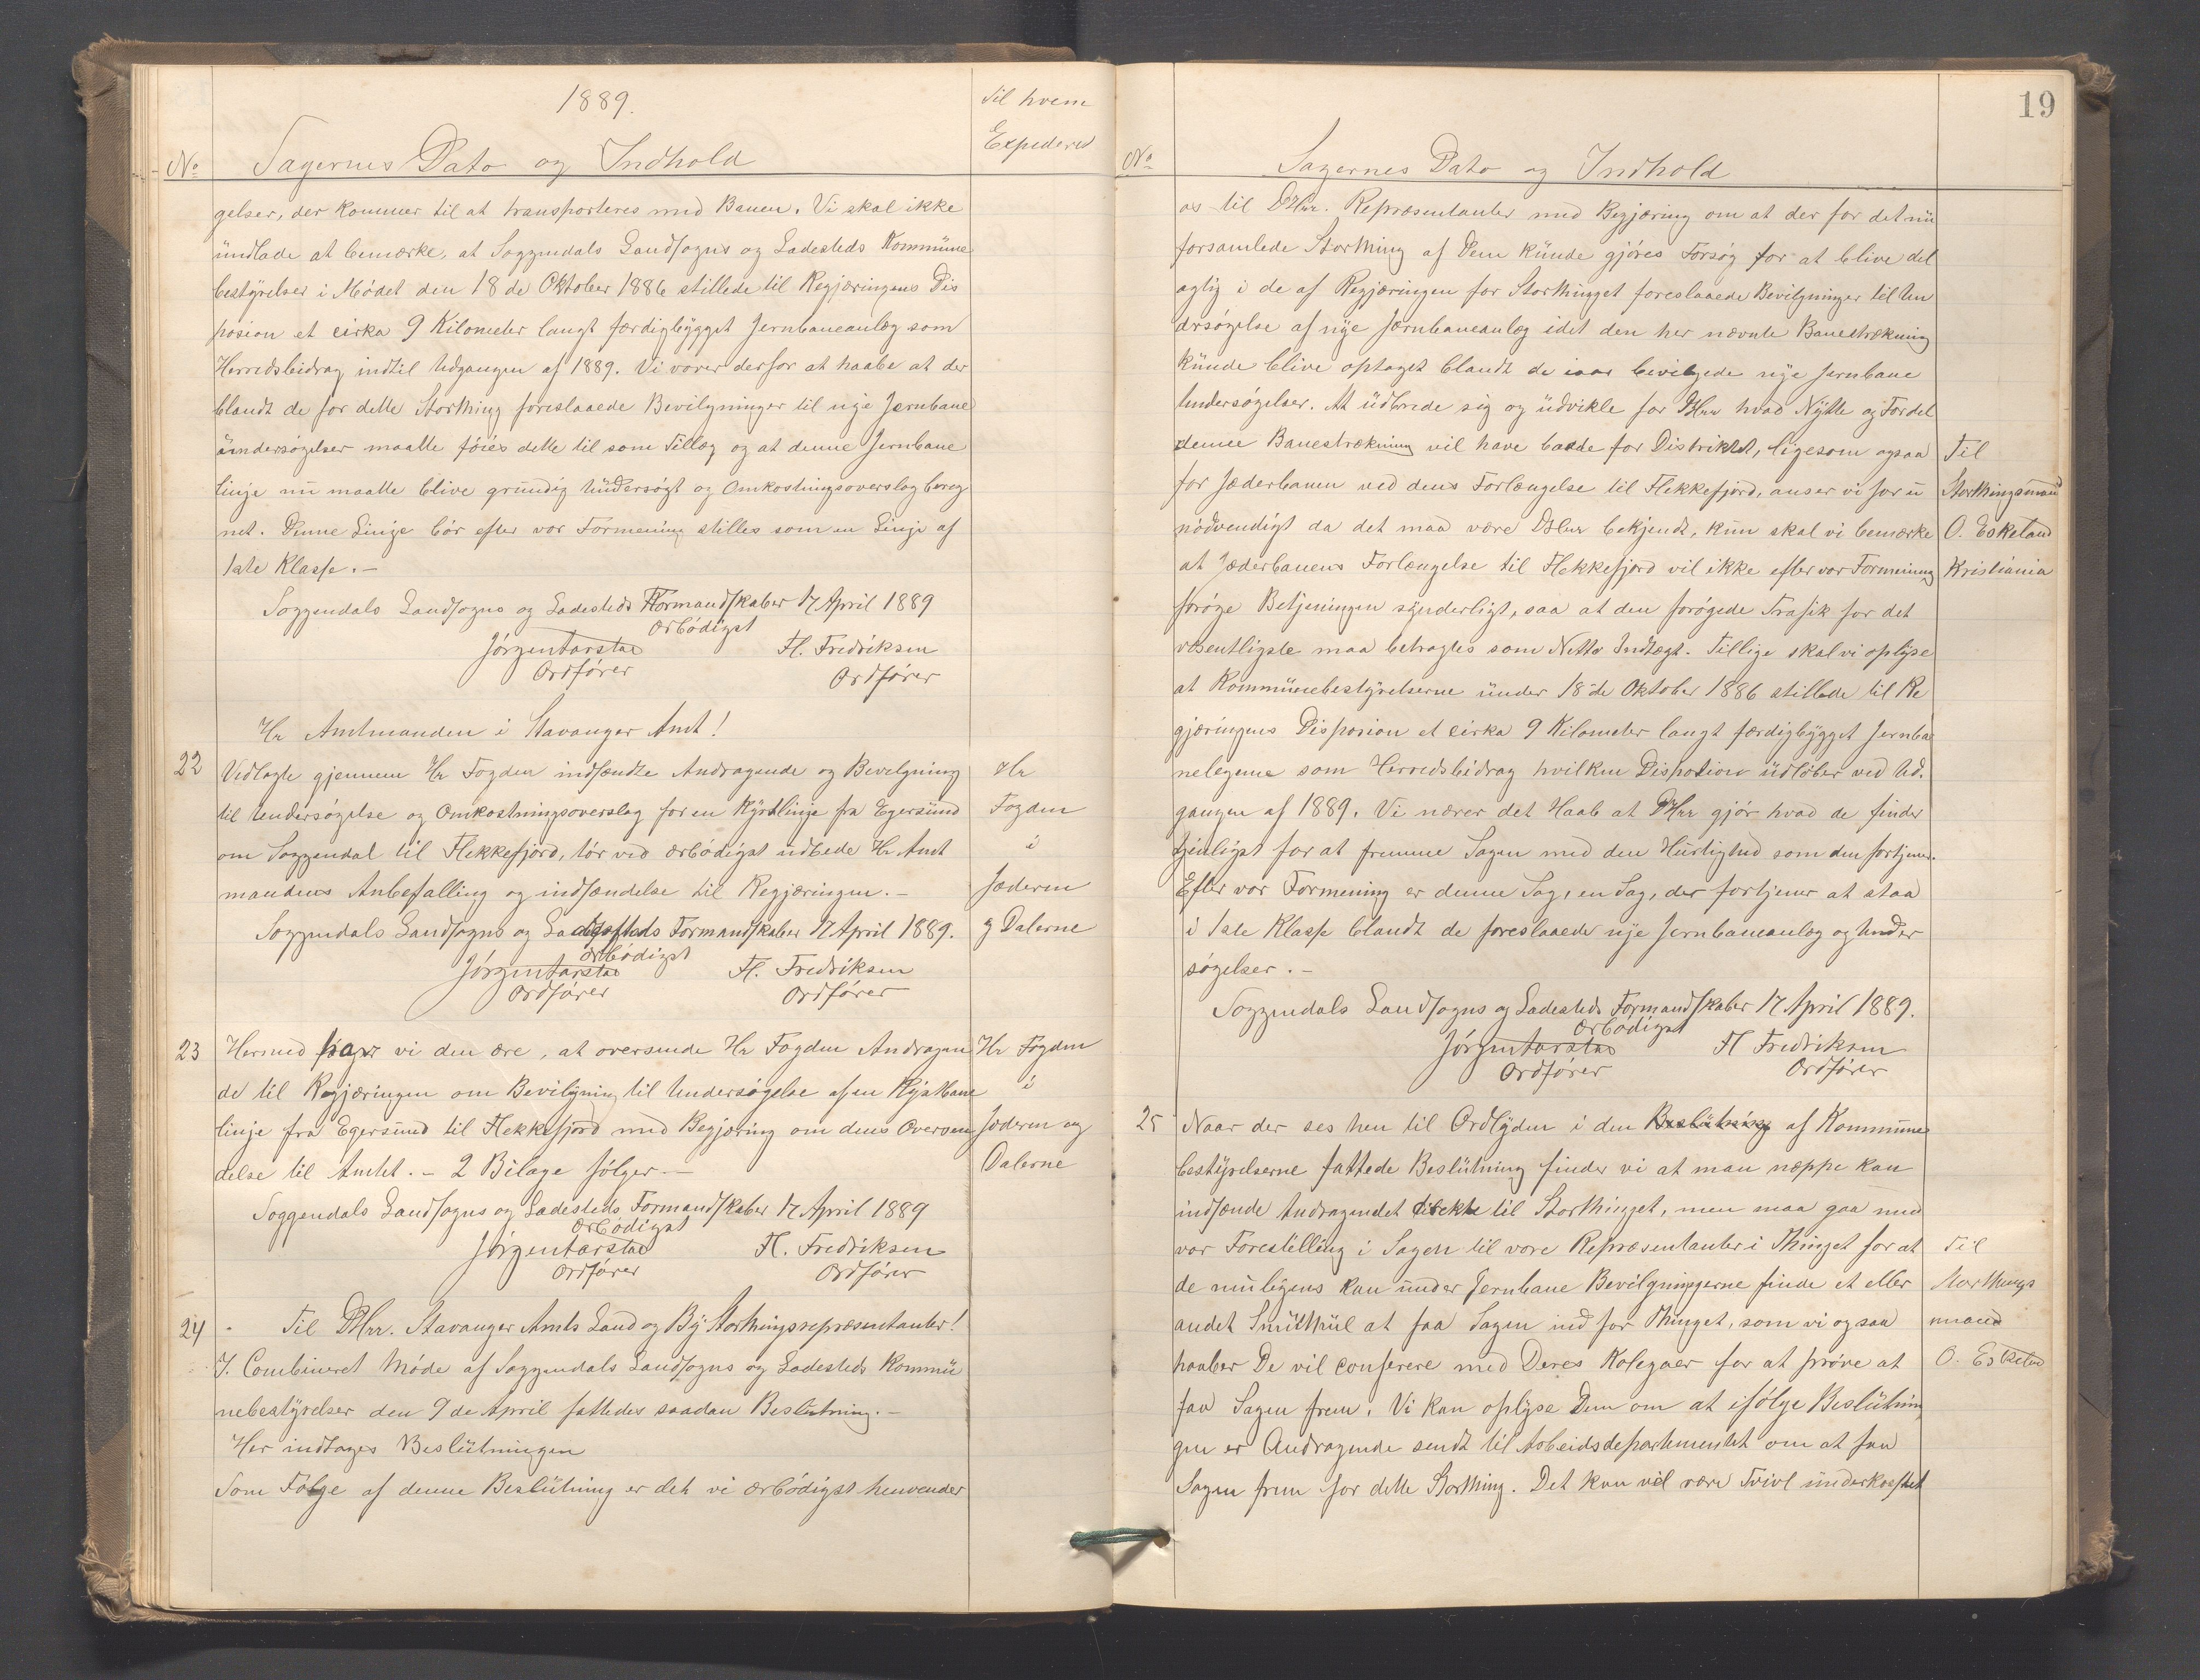 1889.
Til hvem
Expedere
No
Sagernes Dato og Indhold
gelser, der kommer til at transporteres med Banen. Vi skal ikke
undlade at bemærke, at Soggendals Landsogns og Ladesteds Kommune
bestyrelser i Mødet den 18de Oktober 1886 stillede til Regjæringens Dis
posion et cirka 9 Kilometer langt færdigbygget Jernbaneanlæg som
Herredsbidrag indtil Udgangen af 1889. Vi vover derfor at haabe at der
blandt de for dette Storthing foreslaaede Bevilgninger til nye Jernbane
undersøgelser maatte føies dette til som Tillæg og at denne Jernbane
linje nu maatte blive grundig Undersøgt og Omkostningsoverslag bereg
net. Denne Linje bør efter vor Formening stilles som en Linje af
1ste Klasse.—
Soggendals Landsogns og Ladesteds Formandskaber 17 April 1889
Ørbødigst
Jørgen Aarstad
Fl. Fredriksen
Ordfører
Ordfører
Hr Amtmanden i Stavanger Amt!
22 Vedlagte gjennem Hr Fogden indsændte Andragende og Bevelgning
til Undersøgelse og Omkostningsoverslag for en Kystlinje fra Egersund
om Soggendal til Flekkefjord, tør ved ærbødigst udbede Hr Amt
mandens Anbefalling og indsændelse til Regjæringen.—
Soggendals Landsogns og Ladesteds Formandskaber 17 April 1889.
Ørbødigst
Jørgen Aarstad
Fl. Fredriksen
Ordfører
Ordfører
Hr
Fogden
i
Jæderen
g Dalerne
23 Hermed har vi den ære, at oversende Hr Fogden Andragen
de til Regjæringen om Bevilgning til Undersøgelse af en Kystbane
linje fra Egersund til Flekkefjord med Begjæring om dens Oversen
delse til Amtet.— 2 Bilage følger.—
Soggendals Landsogns og Ladesteds Formandskaber 17 April 1889
Ørbødigst
Jørgen Aarstad
Fl. Fredriksen
Ordfører
Ordfører
Hr Fogden
i
Jæderen og
Dalerne
24 - Til DHrr. Stavanger Amts Land og By Storthingsrepræsentanter!
I. Combineret Møde af Soggendals Landsogns og Ladesteds Kommu
nebestyrelser den 9de April fattedes saadan Beslutning.—
Her indtages Beslutningen
Som Følge af denne Beslutning er det vi ærbødigst henvender
19
No
Sagernes Dato og Indhold
os til DHrr. Repræsentanter med Begjæring om at der for det nu
forsamlede Storthing af Dem kunde gjøres Forsøg for at blive del
agtig i de af Regjæringen for Storthinget foreslaaede Bevilgninger til Un
dersøgelse af nye Jernbaneanlæg idet den her nævnte Banestrekning
kunde blive optaget blandt de iaar bevilgede nye Jernbane
Undersøgelser. At udbrede sig og udvikle for DHrr hvad Nytte og Fordel
denne Banestrækning vil have baade for Distriktet, ligesom ogsaa
for Jæderbanen ved dens Forlængelse til Flekkefjord, anser vi for u
nødvendigt da det maa være DHrr bekjendt, kun skal vi bemærke
at Jæderbanens Forlængelse til Flekkefjord vil ikke efter vor Formening
forøge Betjeningen synderligt, saa at den forøgede Trafik for det
vesentligste maa betragtes som Netto Indtægt. Tillige skal vi oplyse
at Kommunebestyrelserne under 18de Oktober 1886 stillede til Re
gjæringens Disposion et cirka 9 Kilometer langt færdigbygget Jernba
nelegeme som Herredsbidrag hvilken Disposion udløber ved Ud.
gangen af 1889. Vi nærer det Haab at DHrr gjør hvad de finder
tjenligst for at fremme Sagen med den Hurtighed som den fortjener.
Efter vor Formening er denne Sag, en Sag, der fortjener at staa
i 1ste Klasse blandt de foreslaaede nye Jernbaneanlæg og Under
søgelser.—
Til
Storthingsmand
O. Eskeland
Kristiania
Soggendals Landsogns og Ladesteds Formandskaber 17 April 1889.
Ørbødigst
Jørgen Aarstad
Fl Fredriksen
Ordfører
Ordfører
25 Naar der ses hen til Ordlyden i den Beslutning af Kommune
bestyrelserne fattede Beslutning finder vi at man næppe kan
indsænde Andragendet direkte til Storthinget, men maa gaa med
vor Forestilling i Sagen til vore Repræsentanter i Thinget for at
de muligens kan under Jernbane Bevilgningerne finde et eller
andet Smuthul at faa Sagen ind for Thinget, som vi ogsaa
haaber De vil conferere med Deres Kolegaer for at prøve at
faa Sagen frem. Vi kan oplyse Dem om at ifølge Beslutnin
gen er Andragende sendt til Arbeidsdepartementet om at faa
Sagen frem for dette Storthing. Det kan vel være Tvivl underkastet
Til
Storthings
mand
O. Eskeland